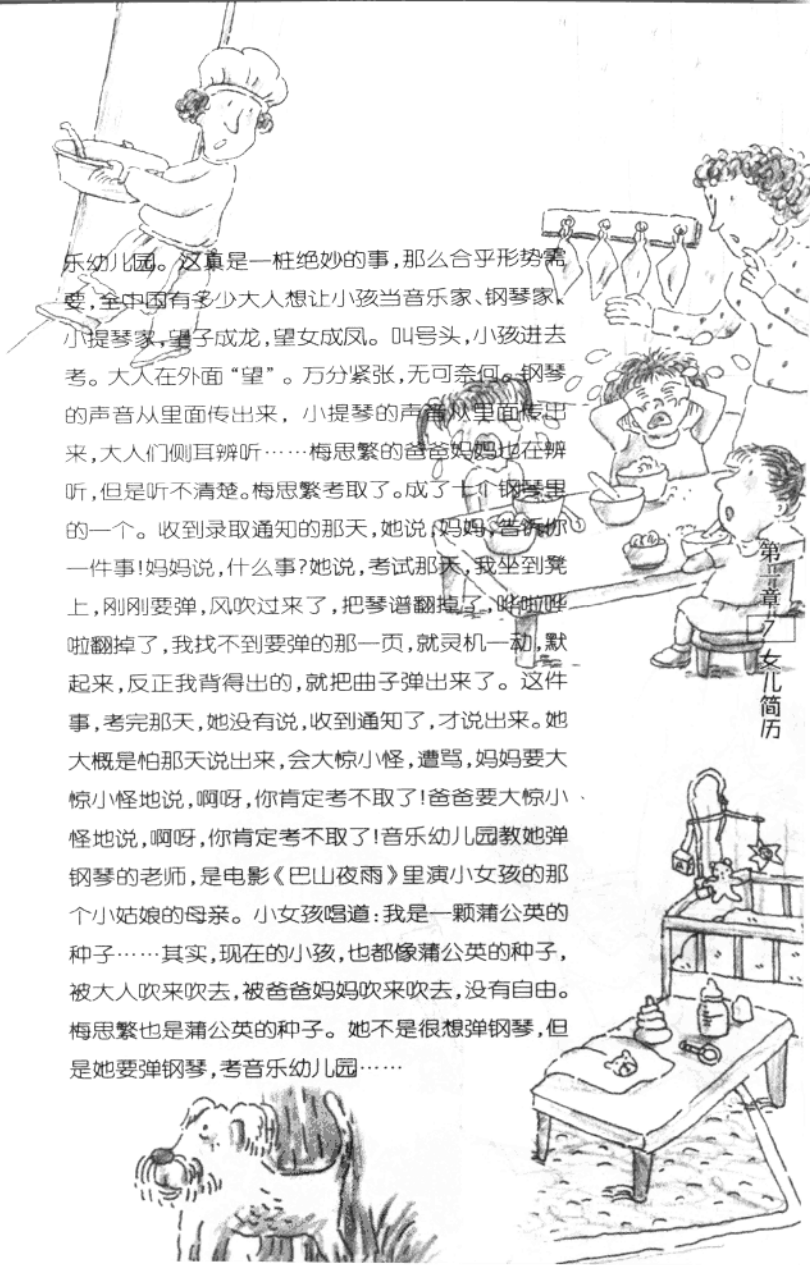 乐幼儿园。这真是一桩绝妙的事,那么合乎形势需
要,全中国有多少大人想让小孩当音乐家、钢琴家、
小提琴家,望子成龙,望女成凤。叫号头,小孩进去
考。大人在外面“望”。万分紧张,无可奈何。钢琴
的声音从里面传出来,小提琴的声音从里面传出
来,大人们侧耳辨听……梅思繁的爸爸妈妈也在辨
听,但是听不清楚。梅思繁考取了。成了十个钢琴里
的一个。收到录取通知的那天,她说,妈妈,告诉你
一件事!妈妈说,什么事?她说,考试那天,我坐到凳
上,刚刚要弹,风吹过来了,把琴谱翻掉了,哗啦哗
啦翻掉了,我找不到要弹的那一页,就灵机一动,默
起来,反正我背得出的,就把曲子弹出来了。这件
事,考完那天,她没有说,收到通知了,才说出来。她
大概是怕那天说出来,会大惊小怪,遭骂,妈妈要大
惊小怪地说,啊呀,你肯定考不取了!爸爸要大惊小
怪地说,啊呀,你肯定考不取了!音乐幼儿园教她弹
钢琴的老师,是电影《巴山夜雨》里演小女孩的那
个小姑娘的母亲。小女孩唱道:我是一颗蒲公英的
种子……其实,现在的小孩,也都像蒲公英的种子,
被大人吹来吹去,被爸爸妈妈吹来吹去,没有自由。
梅思繁也是蒲公英的种子。她不是很想弹钢琴,但
是她要弹钢琴,考音乐幼儿园……
第一章 7 女儿简历